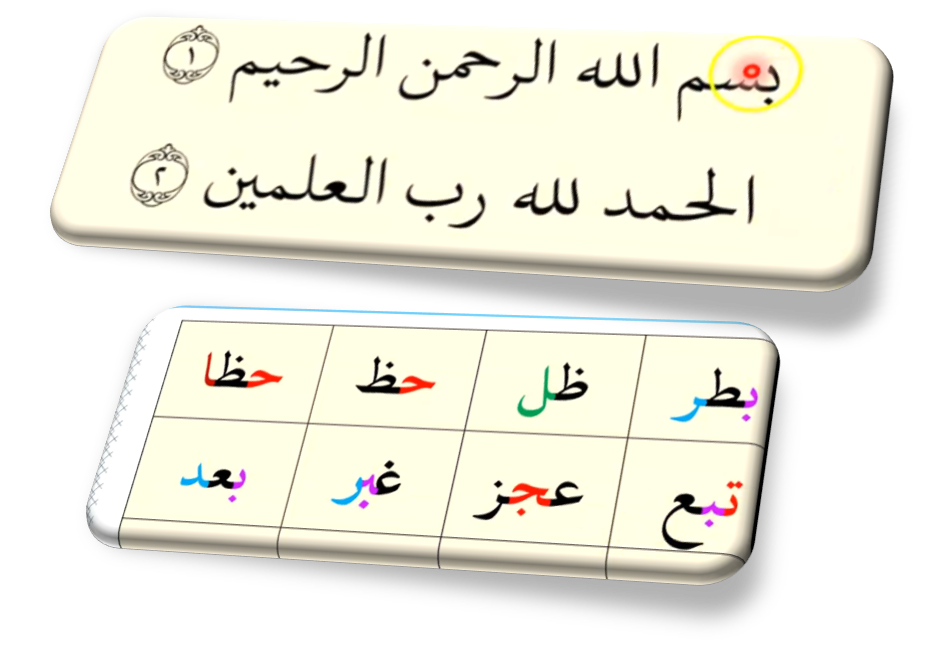 بسم الله الرحمن الرحيم ١
الحمد لله رب العلمين ٢
بطر ظل حظ حظا
تبع عجز غبر بعد